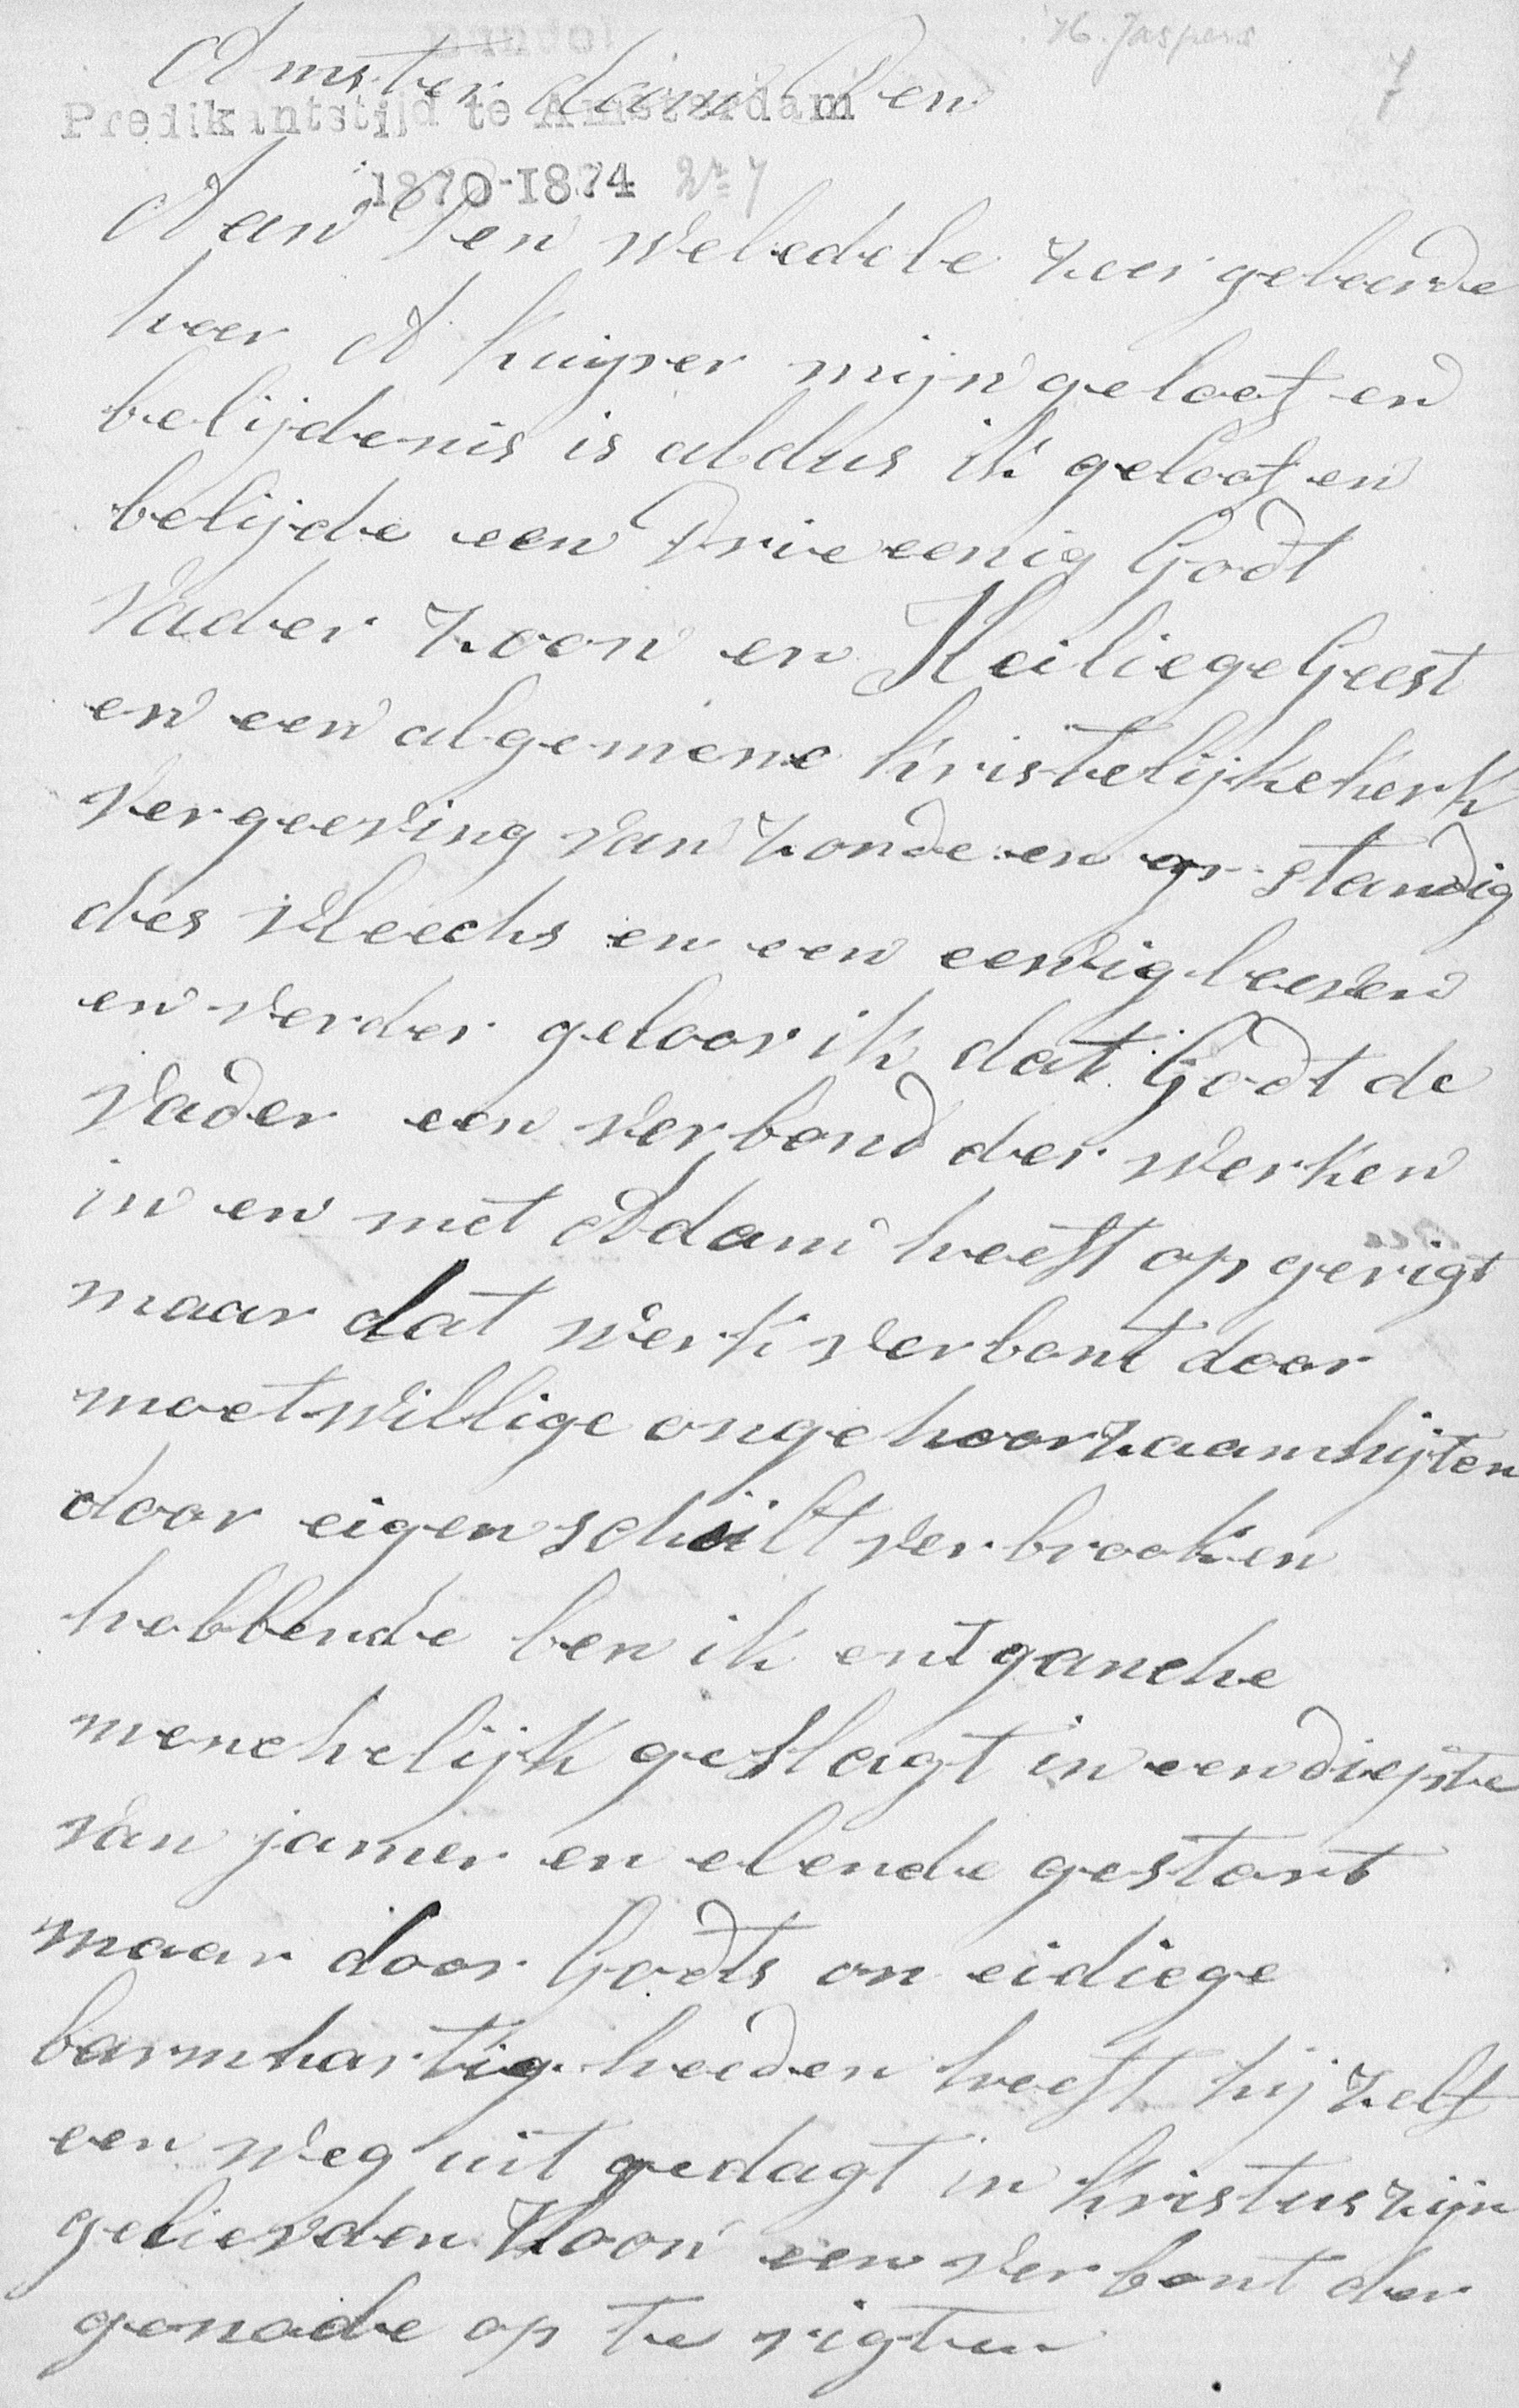 H. Jaspers
7
Bundel
Amsterdam Den
Predikantstijd te Amsterdam
1870-1874 No 7
Aan Den weledele zeer geleerde
heer A Kuiper mijn geloof en
belijdenis is aldus ik geloof en
belijde een Drieeenig Godt
Vader zoon en Heiliege Geest
en een algemene Kristelijke Kerk
vergeeving van zonde en op standig
des vleechs en een eewig leeven
en verder geloov ik dat Godt de
Vader een verbond der werken
in en met Adam heeft op gerigt
maar dat werk verbont door
moetwillige ongehoorzaamhijten
door eigen schult verbrooken
hebbende ben ik ent ganche
menchelijk geslagt in een diepte
van jamer en elende gestort
maar door Godts on eidiege
barmhartig heeden heeft hij zelf
een weg uit gedagt in Kristus zijn
gelievden Zoon een verbont der
genade op te rigten